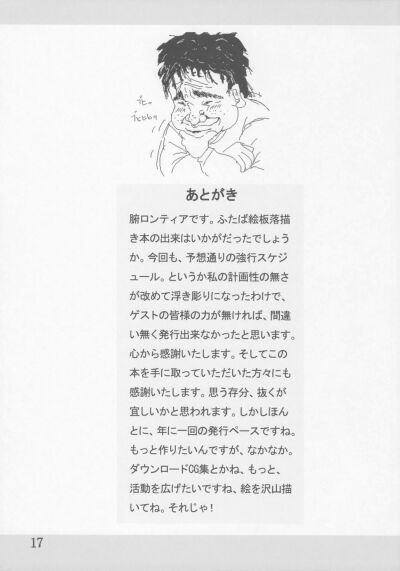 あとがき
腑ロンティアです。ふたば絵板落描
き本の出来はいかがだったでしょう
か。今回も、予想通りの強行スケジ
ュール。というか私の計画性の無さ
が改めて浮き彫りになったわけで、
ゲストの皆様の力が無ければ、間違
い無く発行出来なかったと思います。
心から感謝いたします。そしてこの
本を手に取っていただいた方々にも
感謝いたします。思う存分、抜くが
宜しいかと思われます。しかしほん
とに、年に一回の発行ペースですね。
もっと作りたいんですが、なかなか。
ダウンロードCG集とかね、もっと、
活動を広げたいですね、絵を沢山描
いてね。それじゃ!
17